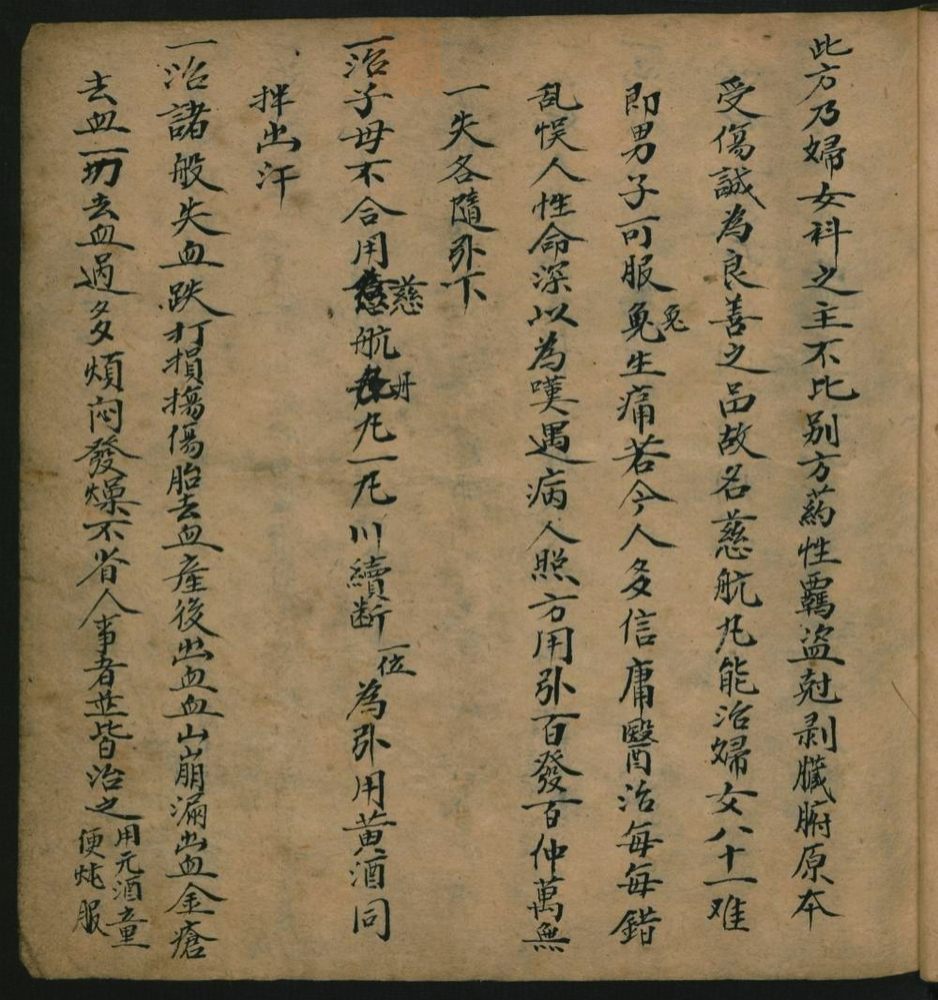 此方乃婦女科之主不比别方葯性霸盗尅剥臟腑原本
受傷誠為良善之品故名慈航九能治婦女八十一难
即男子可服兔兔生痛若今人多信庸醫治每每錯
乱悮人性命深以為嘆遇病人照方用引百發百仲萬無
一失各隨引下
一治子母不合用慈航丹九一九川續断一位為引用黄酒同
拌出汗
一治諸般失血跌打損撝傷胎去血産後出血血山崩漏出血金瘡
去血一切去血過多煩闷發燥不省人事者並皆治之用元酒童
便炖服